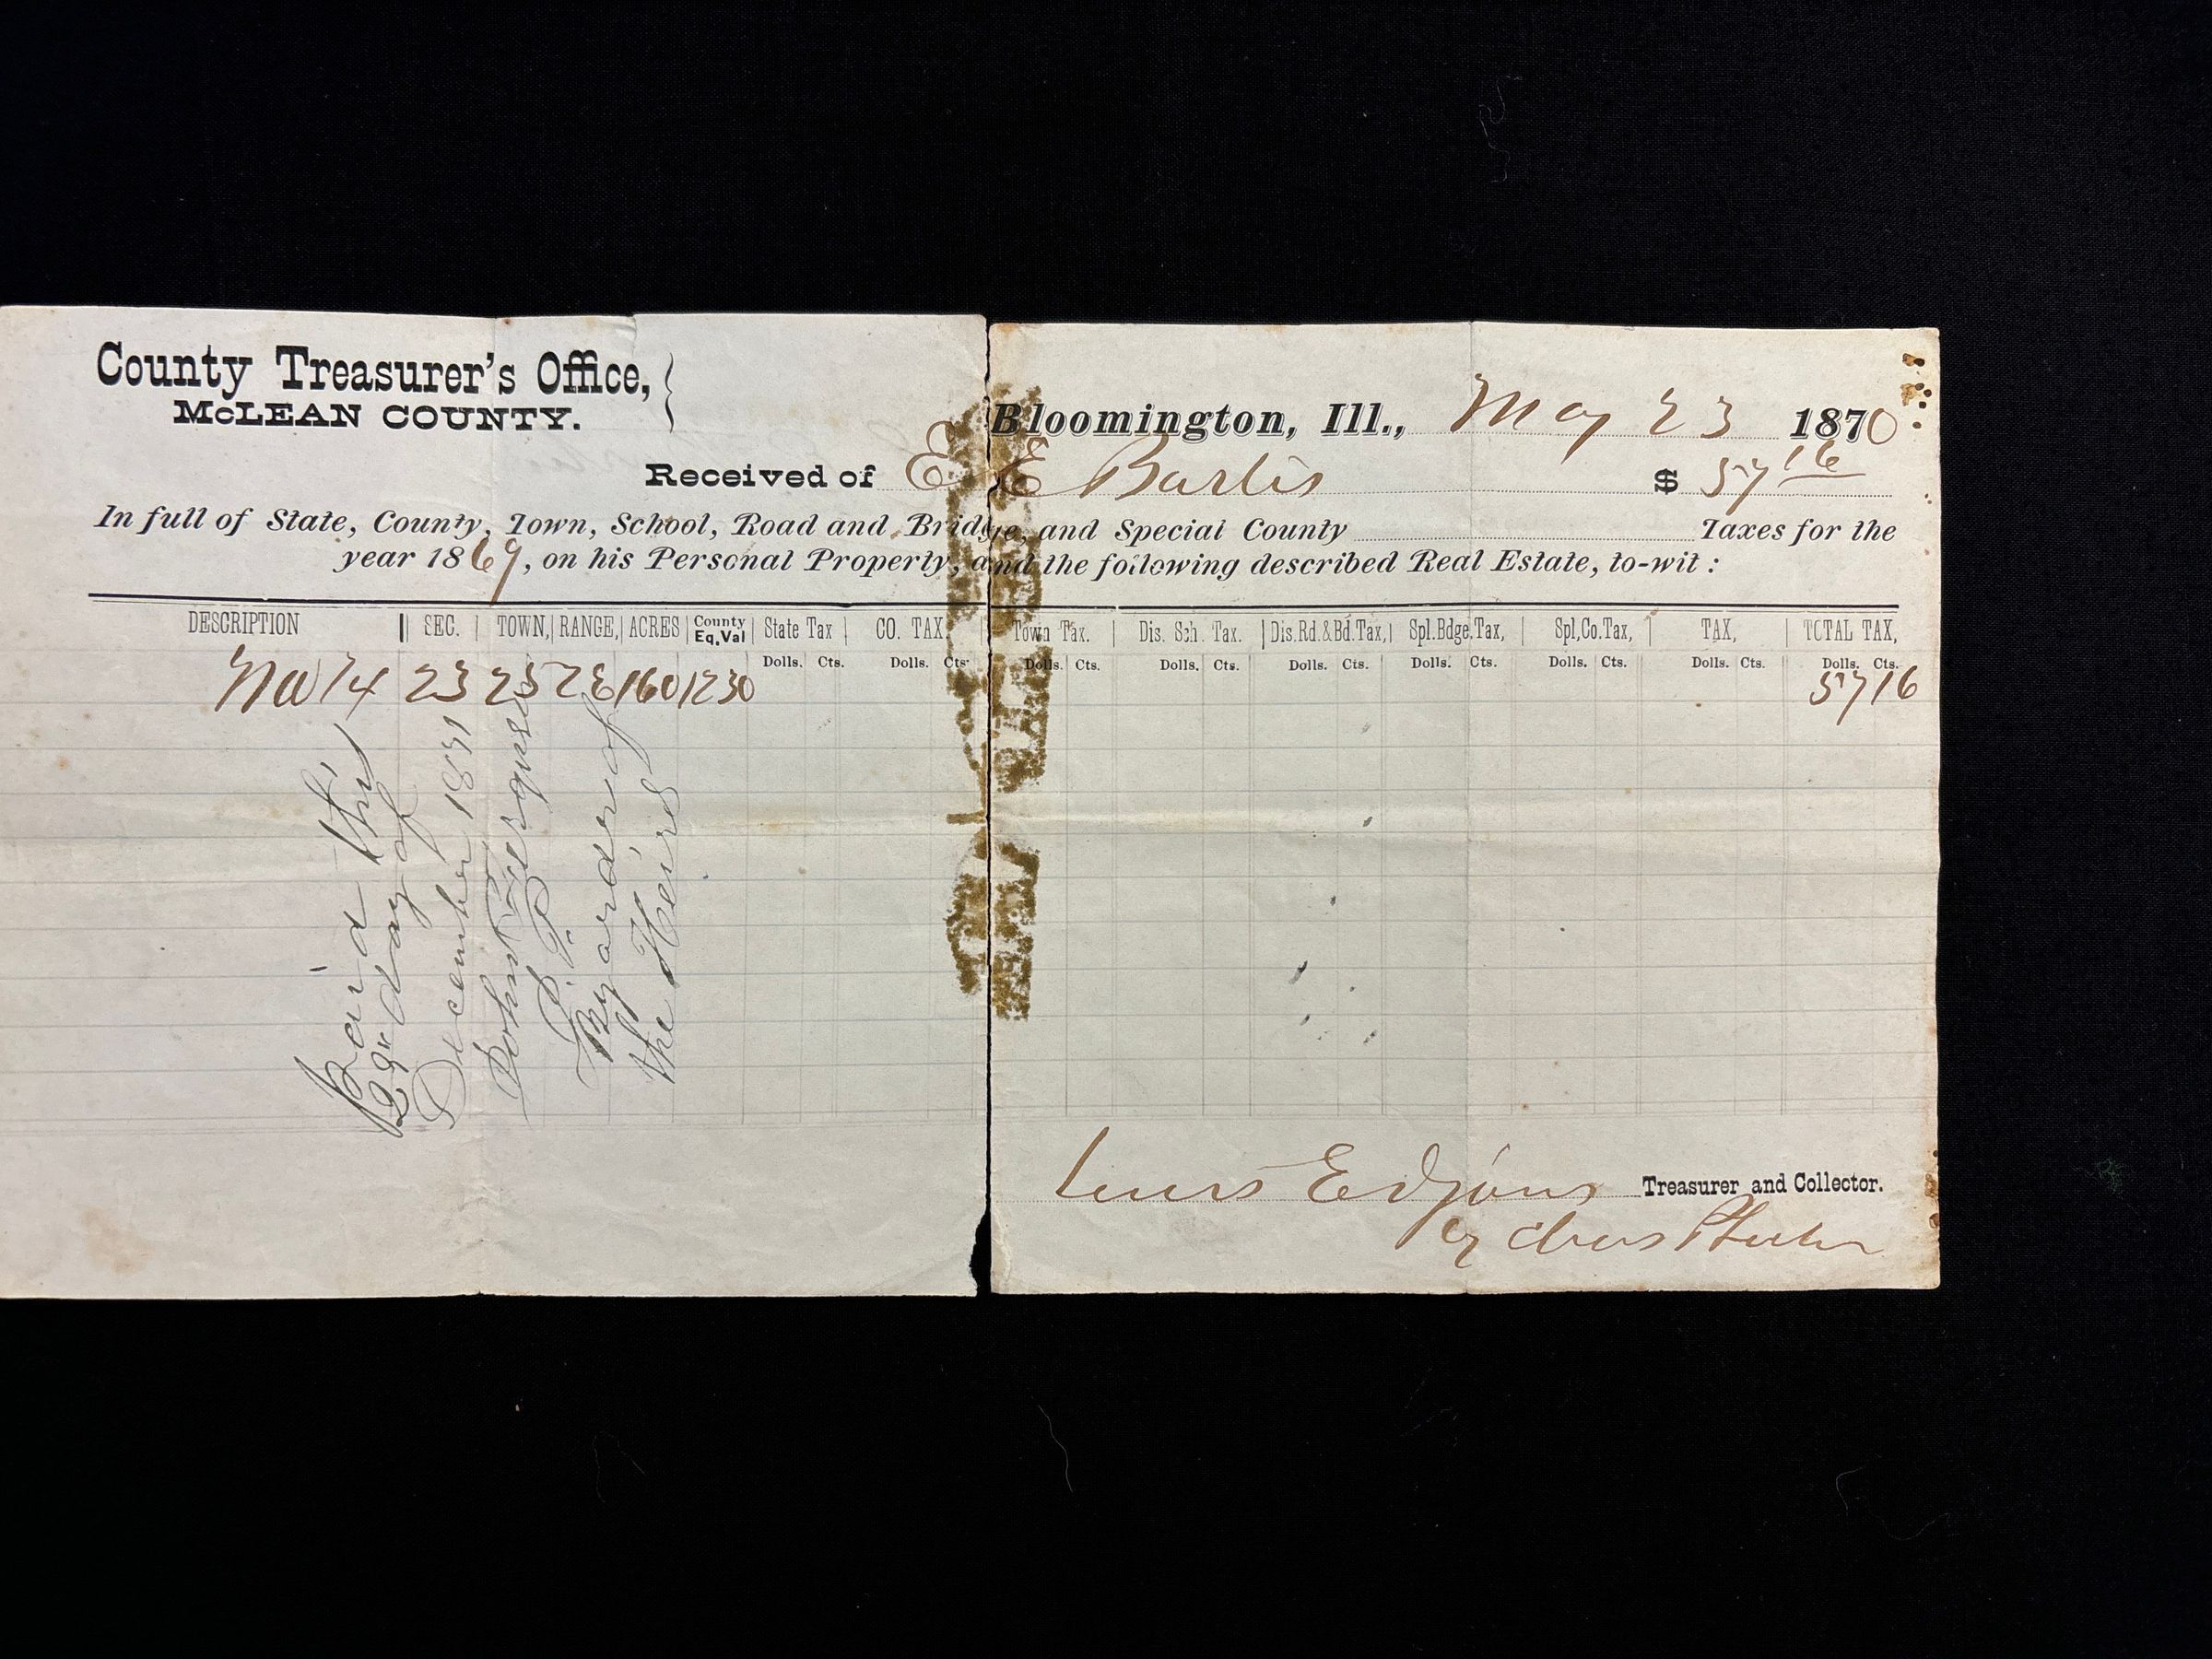 County Treasurer's Office,
McLEAN COUNTY.
Bloomington, Ill., May 23 1870
Received of E E Barlis $ 57 16
In full of State, County, Town, School, Road and Bridge, and Special County Taxes for the
year 1869, on his Personal Property, and the following described Real Estate, to-wit:
DESCRIPTION SEC. TOWN, RANGE, ACRES County Eq.Val State Tax CO. TAX. Town Tax. Dis. Sch. Tax. Dis.Rd.&Bd.Tax, Spl.Bdge,Tax, Spl,Co.Tax, TAX, TOTAL TAX,
Dolls. Cts. Dolls. Cts. Dolls. Cts. Dolls. Cts. Dolls. Cts. Dolls. Cts. Dolls. Cts. Dolls. Cts. Dolls. Cts.
NW 1/4 23 25 2E 160 1230 57 16
Paid this
29" day of
December 1871
John
By order of
the Heirs
Treasurer and Collector.
by